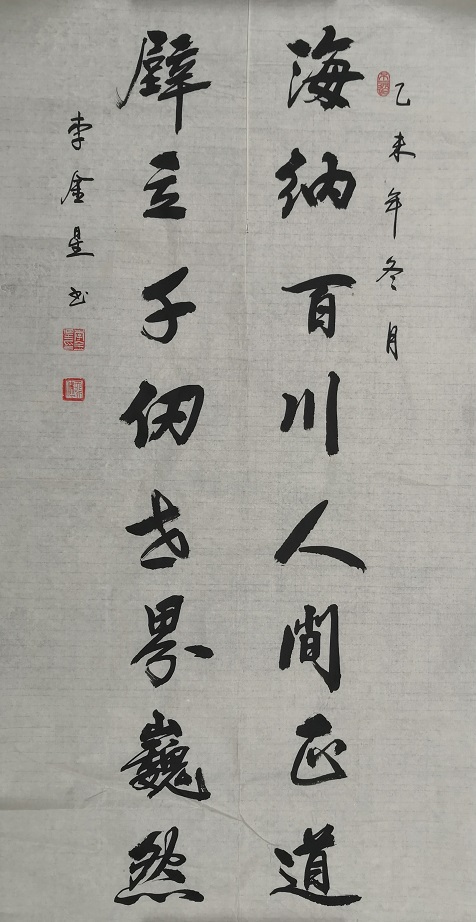 乙未年冬月
海納百川人間正道
壁立千仞世界巍然
李金星书